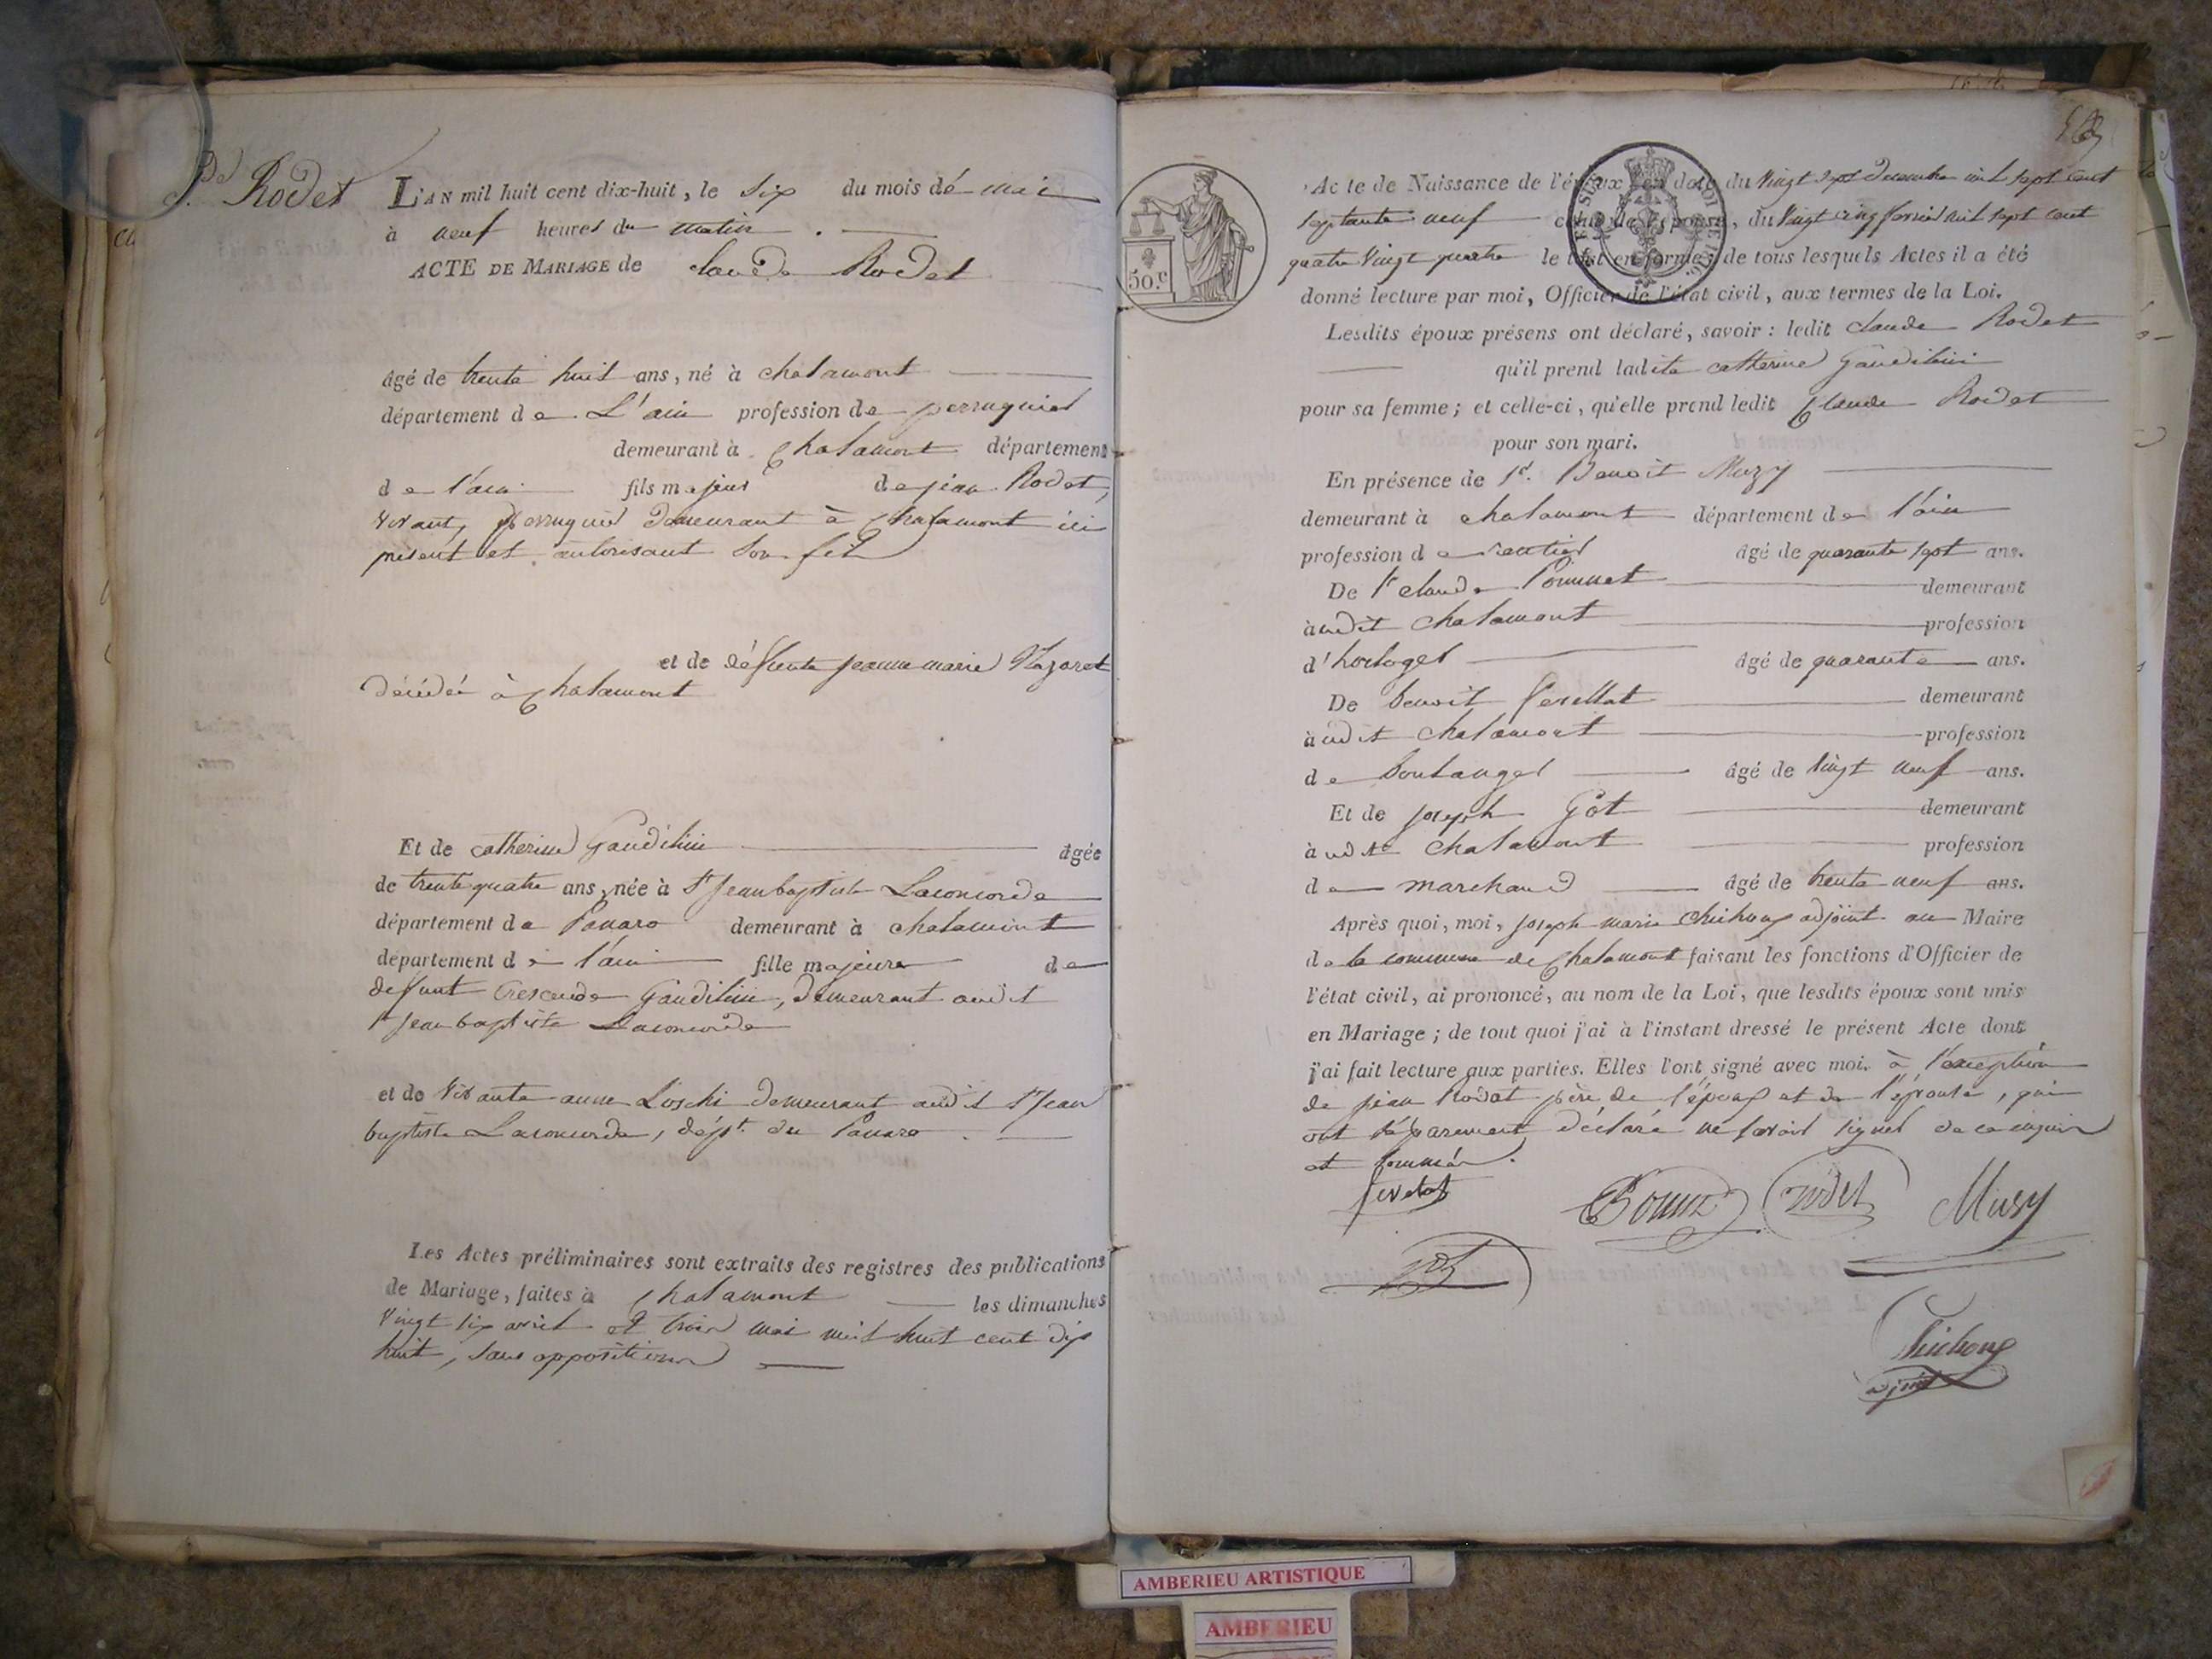 Rodet
L'AN mil huit cent dix-huit, le Six du mois de mai
à neuf heures du matin .
ACTE DE MARIAGE de Claude Rodet
âgé de trente huit ans, né à chalamont
département de L'ain profession de perruquier
demeurant à Chalamont département
de l'ain fils majeur de jean Rodet,
vivant, perruquier demeurant à Chalamont ici
présent et autorisant son fils
et de défunte jeanne marie
décédée à Chalamont
Et de catherine Gaudilini âgée
de trente quatre ans, née à St Jean baptiste Laconcorde
département de Panaro demeurant à chalamont
département de l'ain fille majeure de
defunt Gaudilini, demeurant audit
St Jean baptiste Laconcorde
et de vivante anne Loschi demeurant audit St Jean
baptiste Laconcorde, dépt. du Panaro .
Les Actes préliminaires sont extraits des registres des publications
de Mariage, faites à Chalamont les dimanches
vingt six avril et trois mai mil huit cent dix
huit, sans opposition
50.c
Acte de Naissance de l'époux en date du vingt sept decembre mil sept cent
septante neuf celui de l'épouse, du vingt cinq fevrier mil sept cent
quatre vingt quatre le tout en forme; de tous lesquels Actes il a été
donné lecture par moi, Officier de l'état civil, aux termes de la Loi.
Lesdits époux présens ont déclaré, savoir : ledit claude Rodet
qu'il prend ladite catherine Gaudilini
pour sa femme; et celle-ci, qu'elle prend ledit Claude Rodet
pour son mari.
En présence de Sr. Benoit Muzy
demeurant à chalamont département de l'ain
profession de rentier âgé de quarante sept ans.
De Sr claude Pommet demeurant
audit chalamont profession
d'horloger âgé de quarante ans.
De benoit demeurant
audit chalamont profession
de boulanger âgé de vingt neuf ans.
Et de joseph Got demeurant
audit chalamont profession
de marchand âgé de trente neuf ans.
Après quoi, moi, joseph marie Chichoux adjoint au Maire
de la commune de Chalamont faisant les fonctions d'Officier de
l'état civil, ai prononcé, au nom de la Loi, que lesdits époux sont unis
en Mariage; de tout quoi j'ai à l'instant dressé le présent Acte dont
j'ai fait lecture aux parties. Elles l'ont signé avec moi. à l'exception
de jean Rodet père de l'époux et de l'épouse, qui
ont séparement déclaré ne savoir signer de ce enquis
et sommés.
rodet Musy
adjoint
AMBERIEU ARTISTIQUE
AMBERIEU